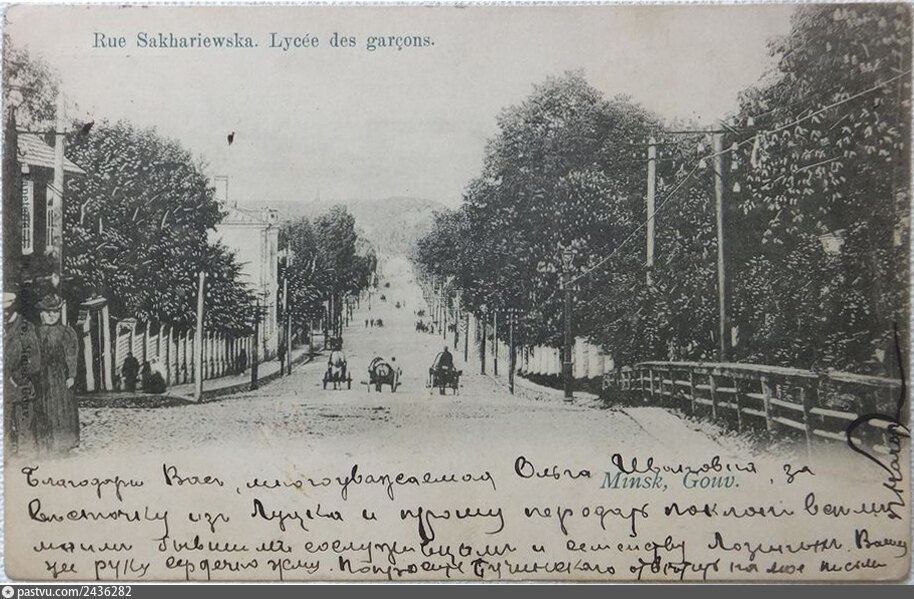 Rue Sakhariewska. Lycée des garçons.
Minsk, Gouv.
Благодарю Васъ, многоуважаемая Ольга Ивановна, за
весточку изъ Луцка и прошу передать поклонъ всемъ
моимъ бывшимъ сослуживцамъ и семейству Вашу
же руку сердечно жму. Попросите ответить на мое письмо
pastvu.com/2436282